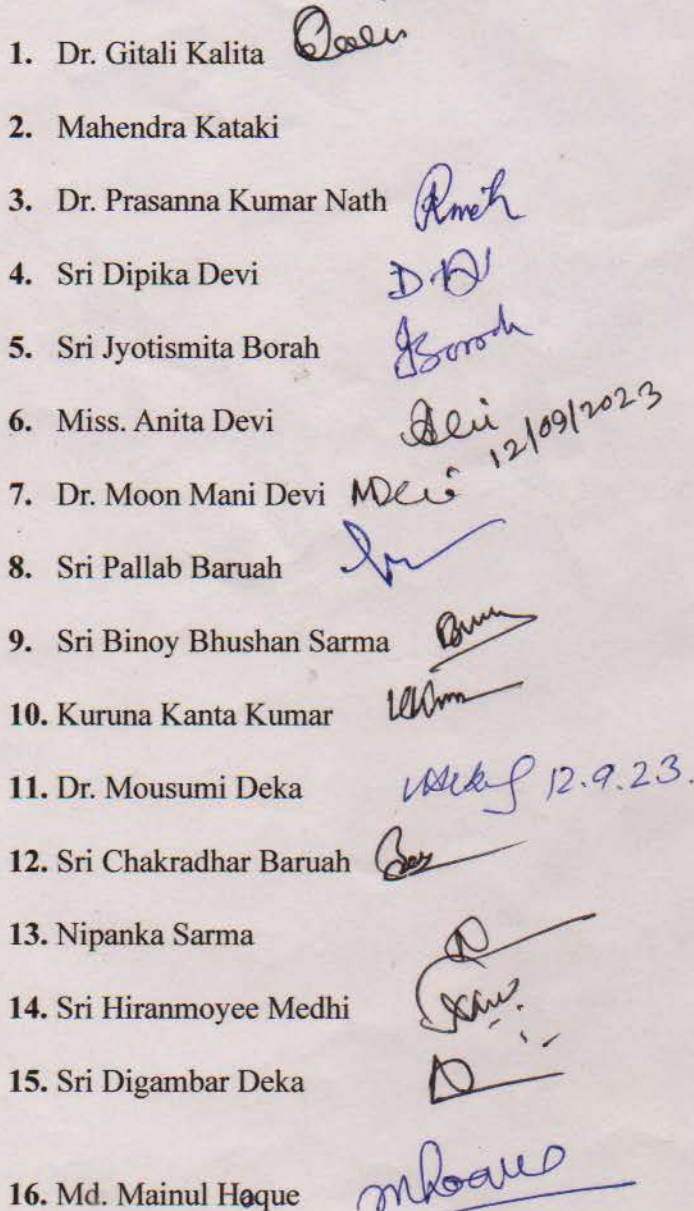 1. Dr. Gitali Kalita
2. Mahendra Kataki
3. Dr. Prasanna Kumar Nath
4. Sri Dipika Devi
5. Sri Jyotismita Borah JBorah
6. Miss. Anita Devi ADevi 12/09/2023
7. Dr. Moon Mani Devi MDevi
8. Sri Pallab Baruah
9. Sri Binoy Bhushan Sarma
10. Kuruna Kanta Kumar
11. Dr. Mousumi Deka MDeka 12.9.23.
12. Sri Chakradhar Baruah
13. Nipanka Sarma
14. Sri Hiranmoyee Medhi
15. Sri Digambar Deka
16. Md. Mainul Hoque mhoque